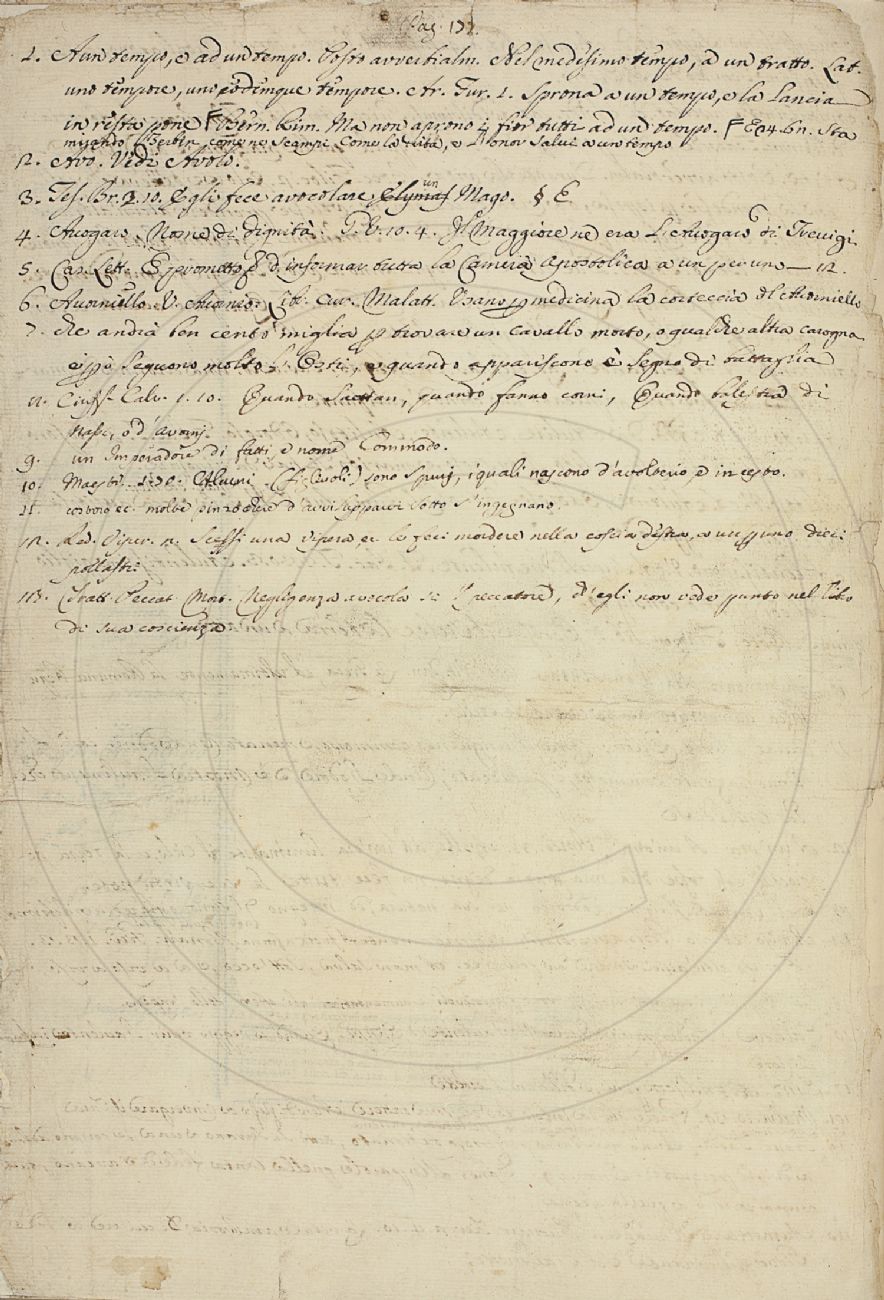 Pag. 177.
1. A un tempo, e ad un tempo. Posto avverbialm. Nel medesimo tempo, a un tratto. Lat.
uno tempore, uno eodemque tempore. Ar. Fur. 1. Sprona a un tempo, e la Lancia
in resta pone Bern. Rim. Ma non aprono i fior tutti ad un tempo. Sta
mirando come ne scampi Come la vita, e l'honor salui a un tempo
2. Avo. Vedi Avolo.
3. Tes. Br. 2. 10. Egli fece avocolare un Elymas Mago. § E
4. Avogaro. Nome di dignità. G. V. 10. 4. Il Maggiore ne era L'Avogaro di Trevigi
5. Car. Lett. E prometto d'infornar tutta la Camera Apostolica a un per uno — 12.
6. Avorniello. V. Avornio. Lib. Cur. Malatt. Usano p medicina la corteccia dl Avorniello
7. che andrà ben cento miglia p trovare un cavallo morto, o qualche altra carogna
e ppò seguono molto l'Osti, e quando appariscono è segno di battaglia
8. Ciriff. Calv. 1. 10. Quando saettan, quando fanno corni, Quando balestra di
nasso, o d'avorni.
9. un Imperadore di fatti, e nome Commodo.
10. Maestr. 1. Alcuni (figliuoli) sono spurij, i quali nascono d'avolterio, e incesto.
11. molte d'avvilupparvi sotto s'ingegnano.
12. Red. Viper. Scelsi una vipera, e le feci mordere nella coscia destra, a uno p uno dieci
pollastri
13. Tratt. Peccat. Mort. Negligenza avocola sì l' peccatore, ch'egli non vede punto nel libro
di sua coscienza